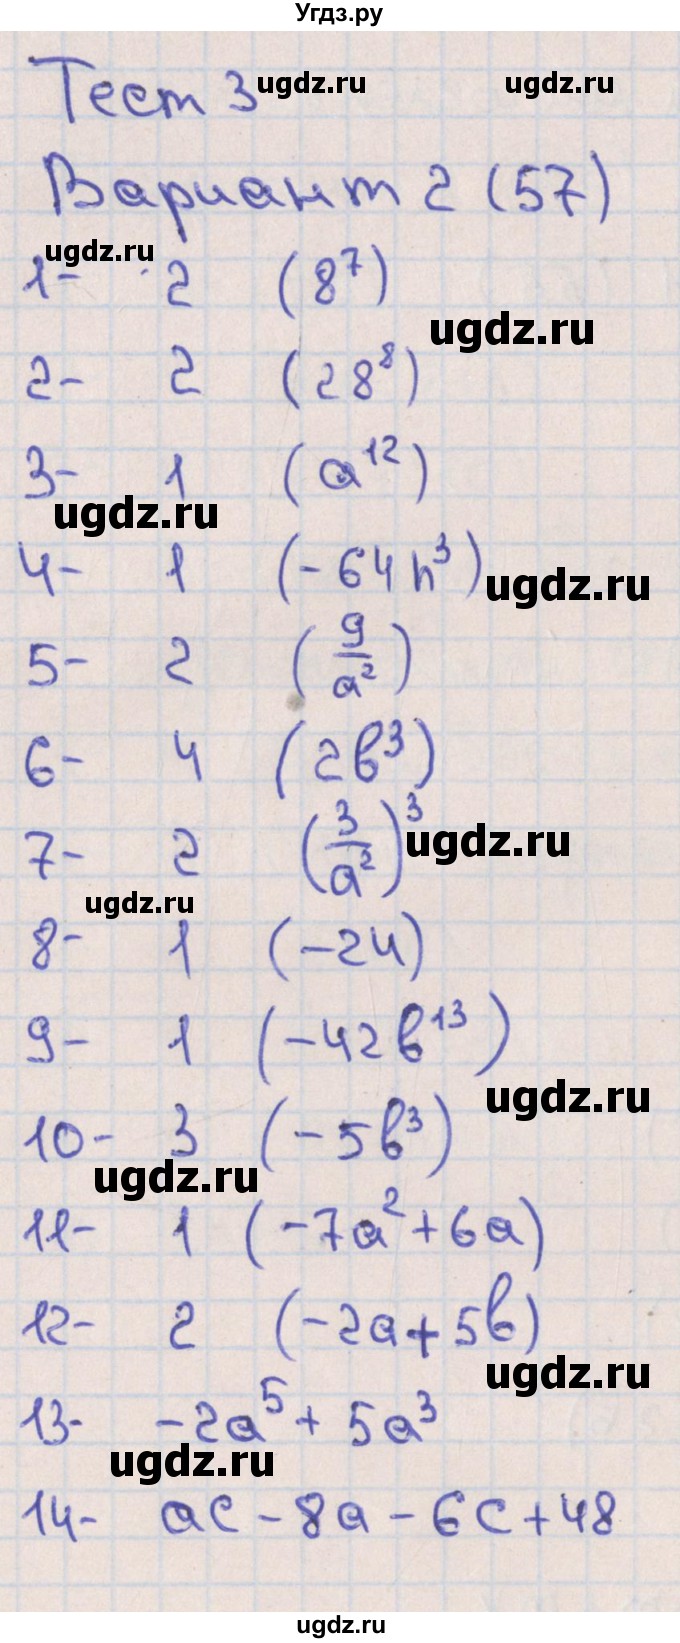 Угдз.ру
Тест 3 ugdz.ru ugdz.ru
Вариант 2 (57)
ugdz.ru
1- 2 (8⁷)
ugdz.ru
2- 2 (28⁸)
3- 1 (a¹²)
ugdz.ru
4- 1 (-64n³)
ugdz.ru
5- 2 (9/a²)
6- 4 (2b³)
7- 2 (3/a²)³ ugdz.ru
ugdz.ru
8- 1 (-24)
9- 1 (-42b¹³)
ugdz.ru
10- 3 (-5b³)
ugdz.ru
11- 1 (-7a²+6a)
12- 2 (-2a+5b)
ugdz.ru
13- -2a⁵+5a³
ugdz.ru
14- ac-8a-6c+48
ugdz.ru